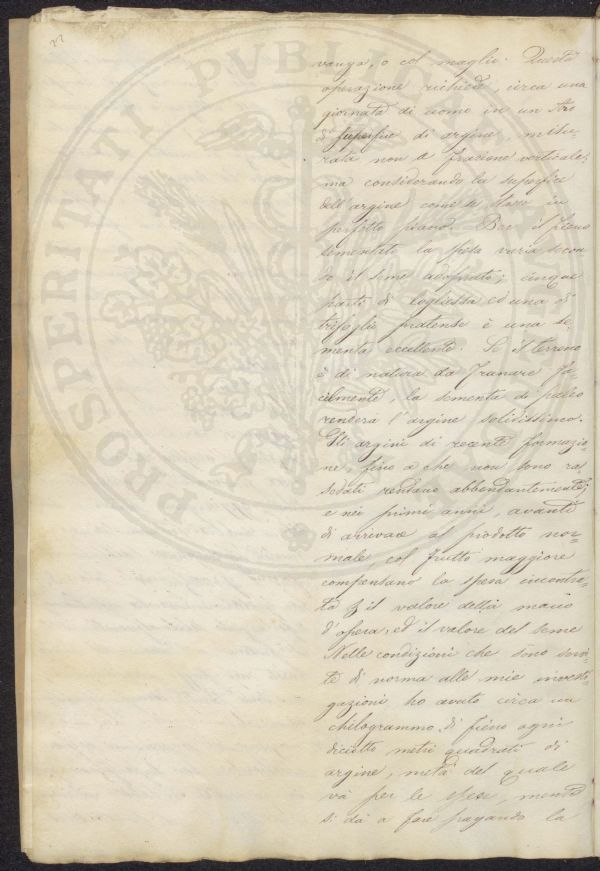 22
vanga, o col maglio. Questa
operazione richiede, circa una
giornata di uomo in un Aro
di superficie di argine, misu-
rata non a frazione verticale,
ma considerando la superficie
dell'argine come se stasse in
perfetto piano. Per il fieno
sementato la spesa varia secon-
do il seme adoprato; cinque
parti di Logliessa ed una di
trifoglio pratense è una se-
menta eccellente. Se il terreno
è di natura da franare fa-
cilmente, la sementa di paleo
renderà l'argine solidissimo.
Gli argini di recente formazio-
ne, fino a che non sono ras-
sodati rendano abbondantemente;
e nei primi anni, avanti
di arrivare al prodotto nor-
male, col frutto maggiore
compensano la spesa incontra-
ta il valore della mano
d'opera, ed il valore del seme
Nelle condizioni che sono servi-
te di norma alle mie investi-
gazioni, ho avuto circa un
chilogrammo di fieno ogni
diciotto metri quadrati di
argine, metà del quale
va per le spese, mentre
si dà a fare pagando la
PROSPERITATI PVBLICAE